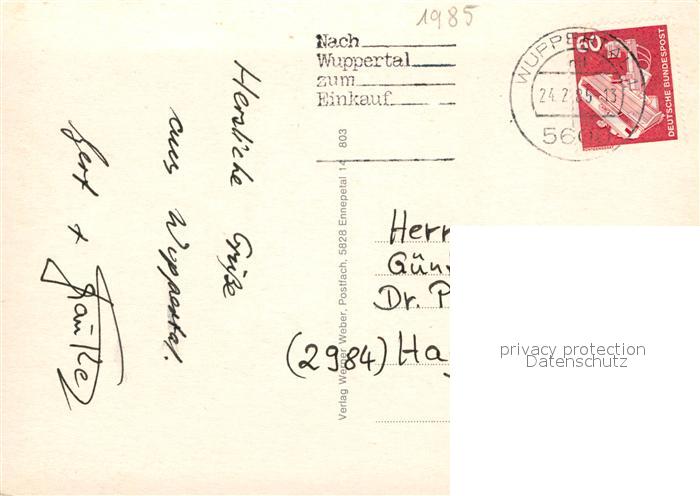 1985
Nach
Wuppertal
zum
Einkauf
WUPPER
24.2.85-13
560
60
DEUTSCHE BUNDESPOST
Herzliche Grüße
aus Wuppertal.
Gert +
Verlag Werner Weber, Postfach, 5828 Ennepetal 14 803
Herr
Gün
Dr. P
(2984) Ha
privacy protection
Datenschutz